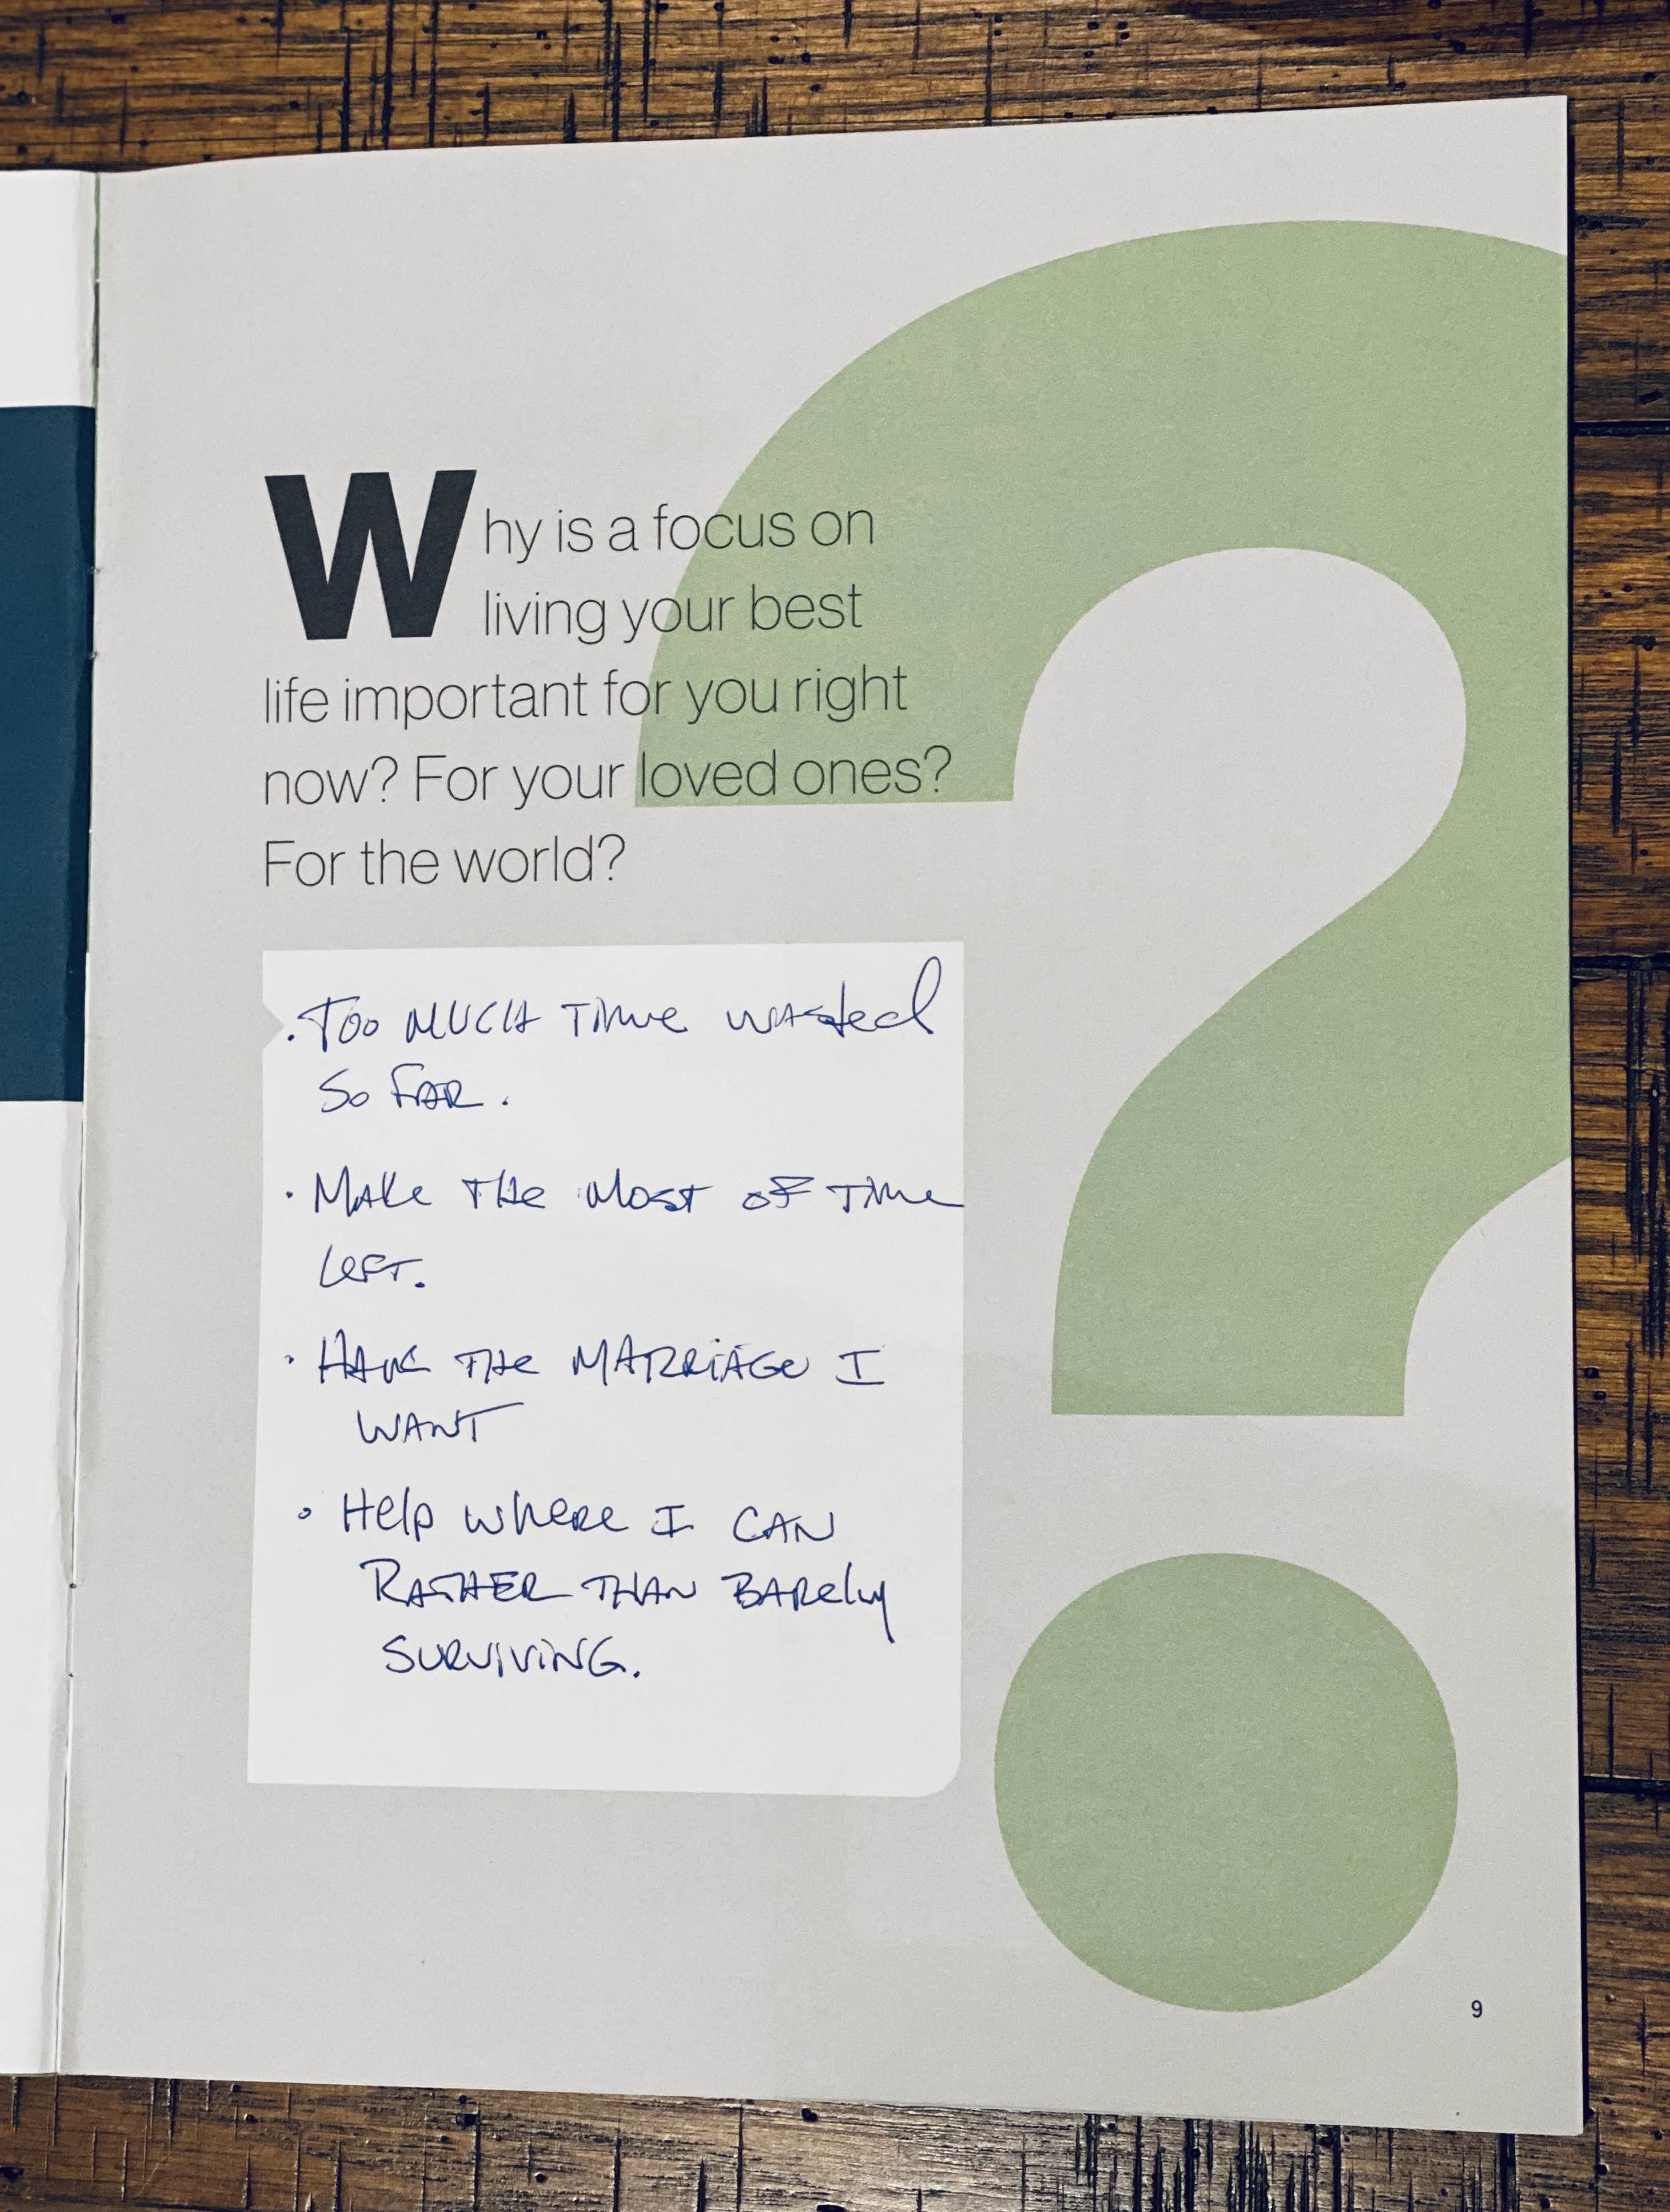 Why is a focus on
living your best
life important for you right
now? For your loved ones?
For the world?
· Too MUCH Time wasted
So FAR.
· Make THe Most oF Time
LeFT.
· HAVE THe MARRiAGe I
WANT
· Help wheRe I CAN
RATHER THAN BARely
SURViViNG.
9